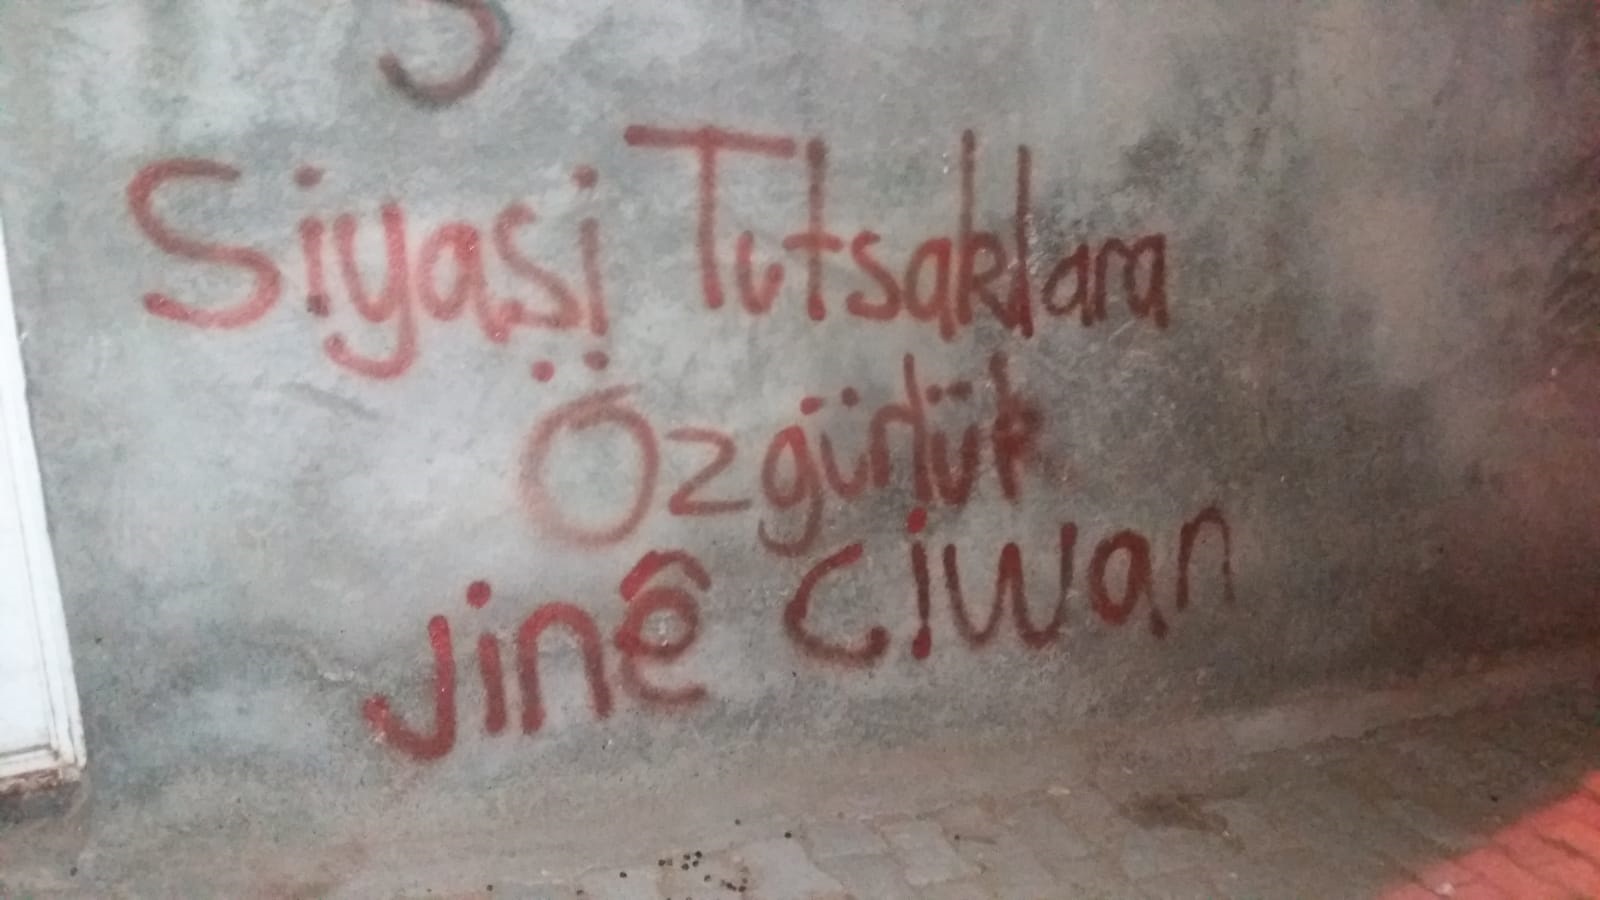 Siyasi Tutsaklara
Özgürlük
Jinê Ciwan